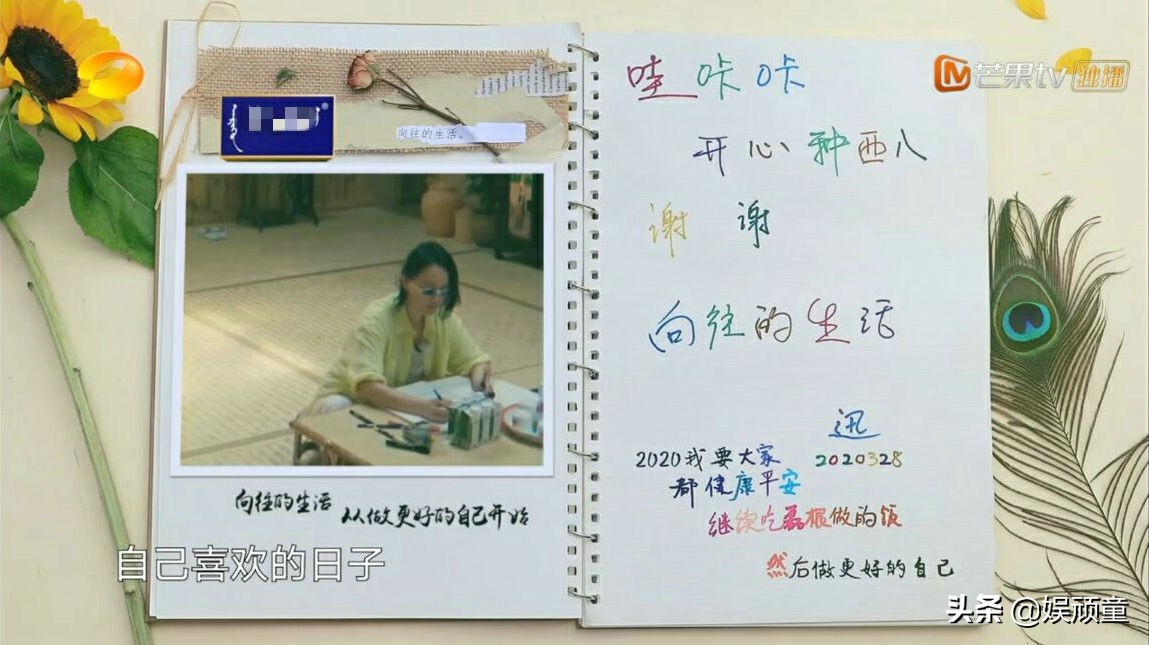 芒果tv 独播
向往的生活。
向往的生活
从做更好的自己开始
自己喜欢的日子
哇咔咔
开心种西八
谢 谢
向往的生活
迅
2020328
2020我要大家
都健康平安
继续吃磊根做的饭
然后做更好的自己
头条 @娱顽童